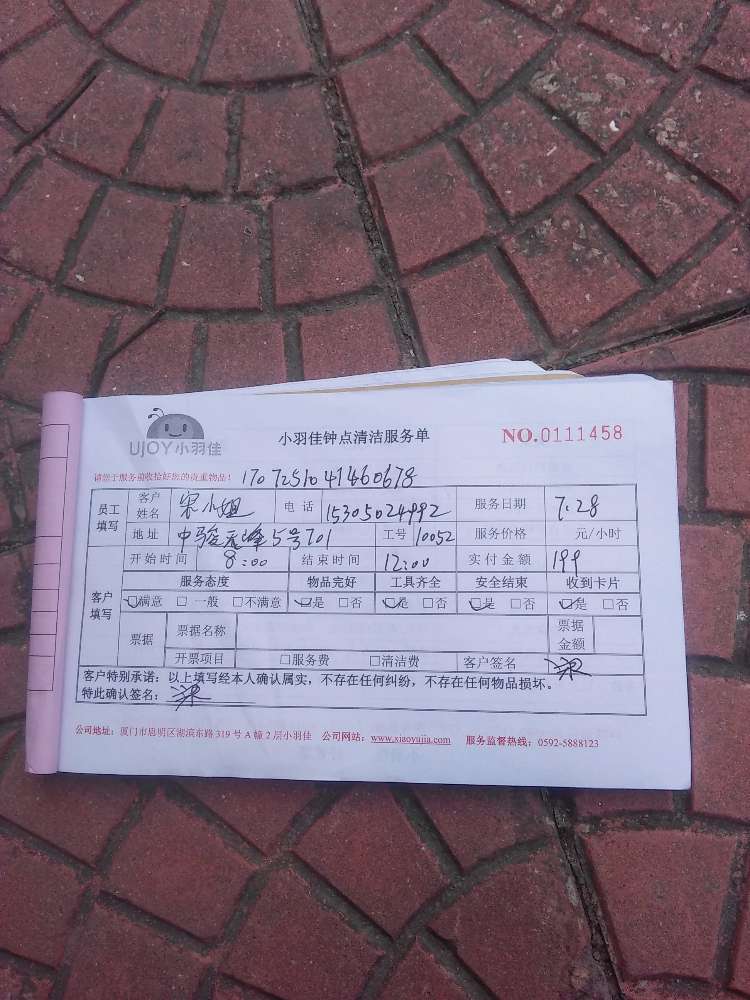 UJOY小羽佳 小羽佳钟点清洁服务单 NO.0111458
请您于服务前收拾好您的贵重物品! 17072510441460678
员工填写 客户姓名 宋小姐 电话 15305024992 服务日期 7.28
地址 中骏天峰5号701 工号 10052 服务价格 元/小时
客户填写 开始时间 8:00 结束时间 12:00 实付金额 199
服务态度 物品完好 工具齐全 安全结束 收到卡片
☑满意 □一般 □不满意 ☑是 □否 ☑是 □否 ☑是 □否 ☑是 □否
票据 票据名称 票据金额
开票项目 □服务费 □清洁费 客户签名
客户特别承诺:以上填写经本人确认属实,不存在任何纠纷,不存在任何物品损坏。
特此确认签名:
公司地址:厦门市思明区湖滨东路319号A幢2层小羽佳 公司网站:www.xiaoyujia.com 服务监督热线:0592-5888123